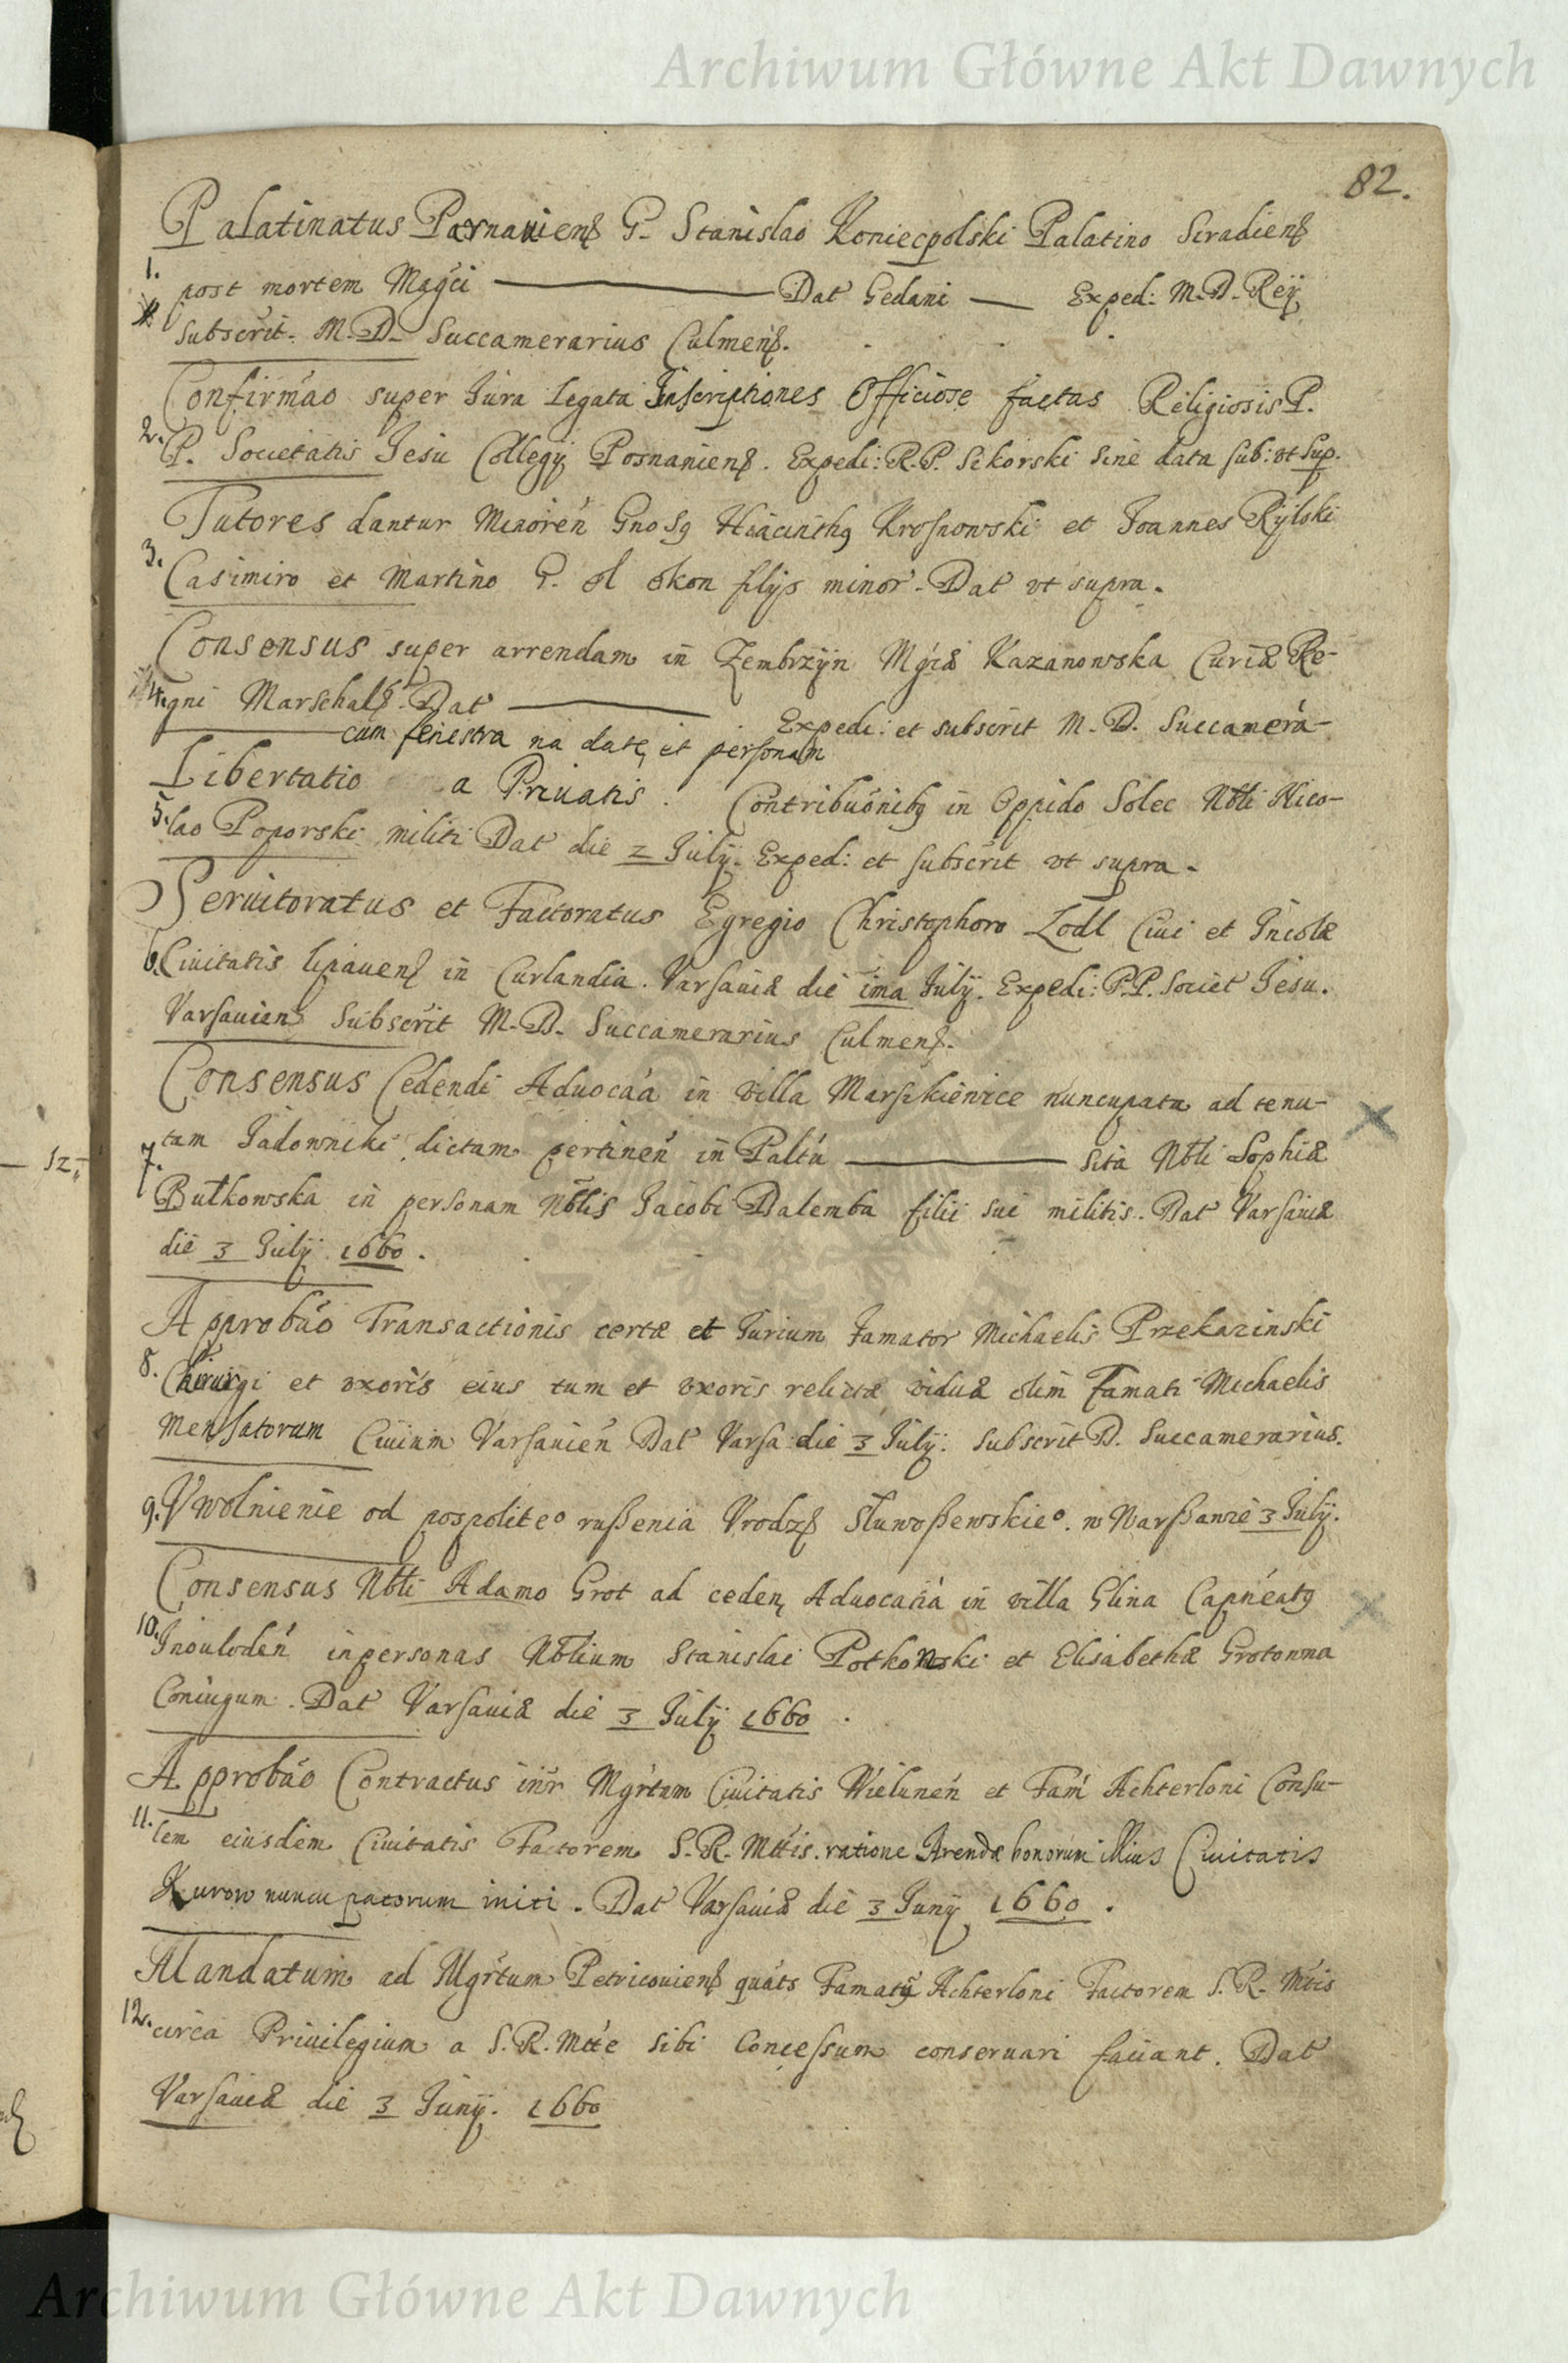 Archiwum Główne Akt Dawnych
82.
Palatinatus Parnauiens G. Stanislao Koniecpolski Palatino Siradiens
1. post mortem Magci — Dat Gedani — Exped: M. D. Rey
subscrit. M. D. Succamerarius Culmens.
Confirmáo super Jura Legata Inscriptiones Officiose factas Religiosis P.
2. P. Societatis Jesu Collegy Posnaniens. Expedi: R. P. Sikorski sine data sub: vt sup.
Tutores dantur Minorén Gnosq Hiacinthq Krosnowski et Joannes Rylski
3. Casimiro et Martino G. ol okon filys minor. Dat vt supra.
Consensus super arrendam in Zembrzyn Mgcæ Kazanowska Curiæ Re-
4. gni Marschals. Dat — Expedi: et subscrit M. D. Succamerá-
cum fenestra na datę et personam
Libertatio a Priuatis. Contribuónibq in Oppido Solec Nbli Nico-
5. lao Poporski militi Dat die 2 July. Exped: et subscrit vt supra.
Seruitoratus et Factoratus Egregio Christophoro Lodl Ciui et Incolæ
6. Ciuitatis lipauens in Curlandia. Varsauiæ die ima July. Expedi: P.P. Societ Jesu.
Varsauiens Subscrit M. D. Succamerarius Culmens.
Consensus Cedendi Aduocáa in villa Marszkiewice nuncupata ad tenu-
7. tam Jadowniki dictam pertinén in Paltú — sita Nbli Sophiæ
Butkowska in personam Nblis Jacobi Dalemba filii sui militis. Dat Varsauiæ
die 3 July 1660.
Approbáo Transactionis certæ et Jurium Famator Michaelis Przekazinski
8. Chirurgi et vxoris eius tum et vxoris relictæ viduæ olim Famati Michaelis
Mensatorum Ciuium Varsauién Dat Varsa: die 3 July. Subscrit D. Succamerarius.
9. Vwolnienie od pospoliteo rußenia Vrodzs Sluwoßewskieo. w Warßawie 3 July.
Consensus Nbli Adamo Grot ad ceden Aduocatiá in villa Glina Capnéatq
10. Inoulodén in personas Nblium Stanislai Potkonski et Elisabethæ Grotowna
Coniugum. Dat Varsauiæ die 3 July 1660.
Approbáo Contractus intr Mgrtum Ciuitatis Wielunén et Fam Achterloni Consu-
11. lem eiusdem Ciuitatis Factorem S. R. Mttis. ratione Arendæ bonorum illius Ciuitatis
Kurow nuncupatorum initi. Dat Varsauiæ die 3 Juny 1660.
Mandatum ad Mgrtum Petricouiens quáts Famatq Achterloni Factorem S. R. Mtis
12. circa Priuilegium a S. R. Mtte sibi Concessum conseruari faciant. Dat
Varsauiæ die 3 Juny. 1660
Archiwum Główne Akt Dawnych